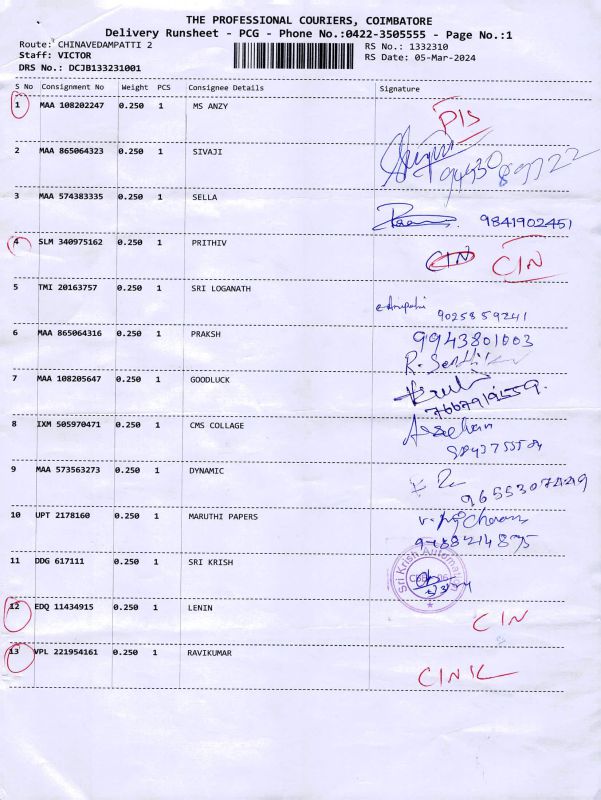 THE PROFESSIONAL COURIERS, COIMBATORE
Delivery Runsheet - PCG - Phone No.:0422-3505555 - Page No.:1
Route: CHINAVEDAMPATTI 2
RS No.: 1332310
Staff: VICTOR
RS Date: 05-Mar-2024
DRS No.: DCJB133231001
S No Consignment No Weight PCS Consignee Details Signature
1 MAA 108202247 0.250 1 MS ANZY
2 MAA 865064323 0.250 1 SIVAJI
3 MAA 574383335 0.250 1 SELLA
9841902451
4 SLM 340975162 0.250 1 PRITHIV CIN CIN
5 TMI 20163757 0.250 1 SRI LOGANATH
9025859241
6 MAA 865064316 0.250 1 PRAKSH 9943801003
7 MAA 108205647 0.250 1 GOODLUCK
8 IXM 505970471 0.250 1 CMS COLLAGE
9 MAA 573563273 0.250 1 DYNAMIC
10 UPT 2178160 0.250 1 MARUTHI PAPERS
11 DDG 617111 0.250 1 SRI KRISH Sri Krish Automa
12 EDQ 11434915 0.250 1 LENIN CIN
13 VPL 221954161 0.250 1 RAVIKUMAR